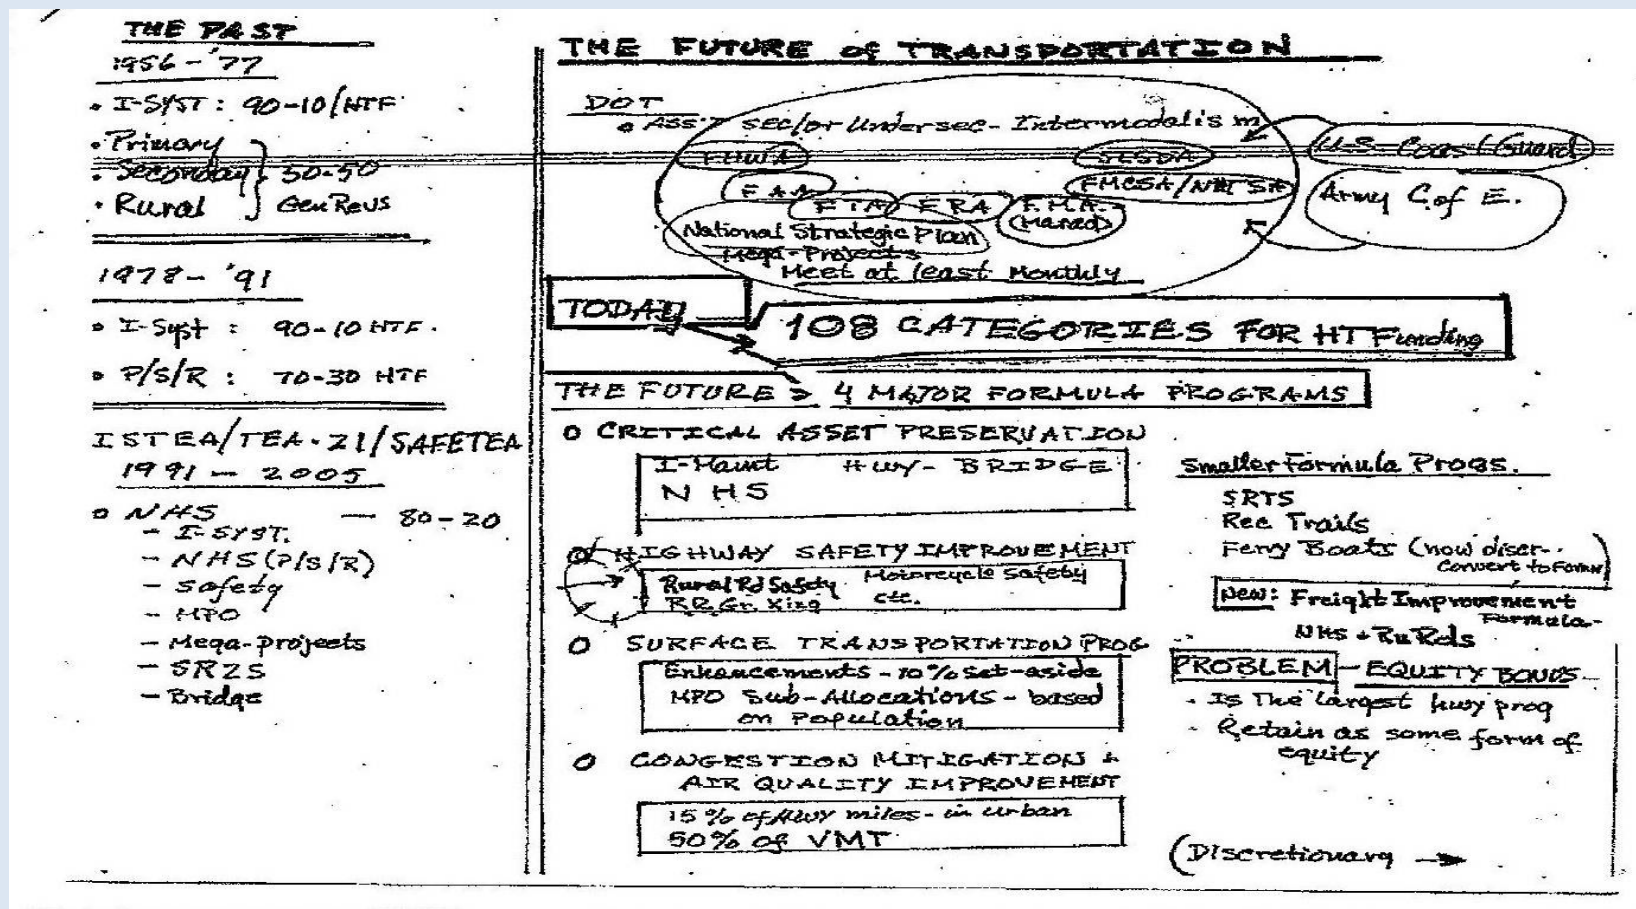 THE PAST
1956-'77
• I-SYST: 90-10/HTF
• Primary
• Secondary } 50-50
• Rural GenRevs
1978-'91
• I-Syst : 90-10 HTF.
• P/S/R : 70-30 HTF
ISTEA/TEA-21/SAFETEA
1991 - 2005
o NHS — 80-20
- I-SYST.
- NHS (P/S/R)
- Safety
- MPO
- Mega-projects
- SRZS
- Bridge
THE FUTURE of TRANSPORTATION
DOT
• ASS'T Sec/or Undersec- Intermodalism
FHWA SLSDA U.S. Coast Guard
FAA FMCSA/NHTSA Army C.of E.
FTA FRA F.M.A.
(Marad)
National Strategic Plan
Mega-Projects
Meet at least Monthly
TODAY
108 CATEGORIES FOR HTFunding
THE FUTURE > 4 MAJOR FORMULA PROGRAMS
o CRITICAL ASSET PRESERVATION
I-Maint Hwy-BRIDGE
NHS
o HIGHWAY SAFETY IMPROVEMENT
Rural Rd Safety Motorcycle Safety
R.R.Gr. Xing etc.
o SURFACE TRANSPORTATION PROG
Enhancements - 10% Set-aside
MPO Sub-Allocations - based
on Population
o CONGESTION MITIGATION &
AIR QUALITY IMPROVEMENT
15% of Hwy miles - in urban
50% of VMT
Smaller Formula Progs.
SRTS
Rec Trails
Ferry Boats (now discr-
Convert to Form)
New: Freight Improvement
Formula-
NHS + RuRds
PROBLEM - EQUITY BONUS
- Is The largest hwy prog
- Retain as some form of
equity
(Discretionary →